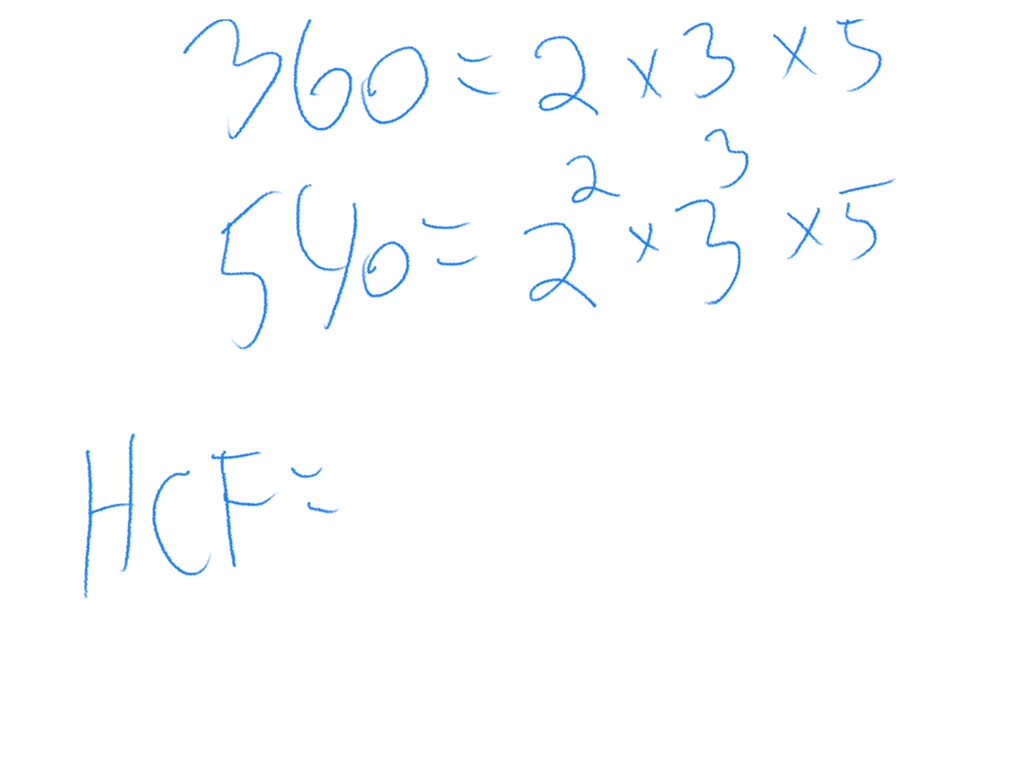 360 = 2 × 3 × 5
540 = 2² × 3³ × 5
HCF =